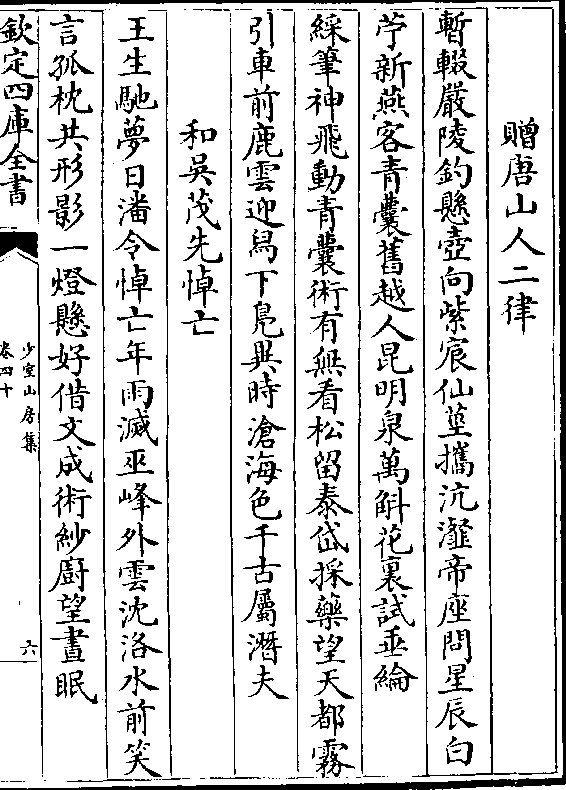 贈唐山人二律
暫輟嚴陵釣懸壺向紫宸仙莖攜沆瀣帝座問星辰白
苧新燕客青囊舊越人昆明泉萬斛花裏試垂綸
綵筆神飛動青囊術有無看松留泰岱採藥望天都霧
引車前鹿雲迎舄下鳧異時滄海色千古屬潛夫
和吳茂先悼亡
王生馳夢日潘令悼亡年雨滅巫峰外雲沈洛水前笑
言孤枕共形影一燈懸好借文成術紗廚望晝眠
欽定四庫全書
少室山房集
卷四十
六